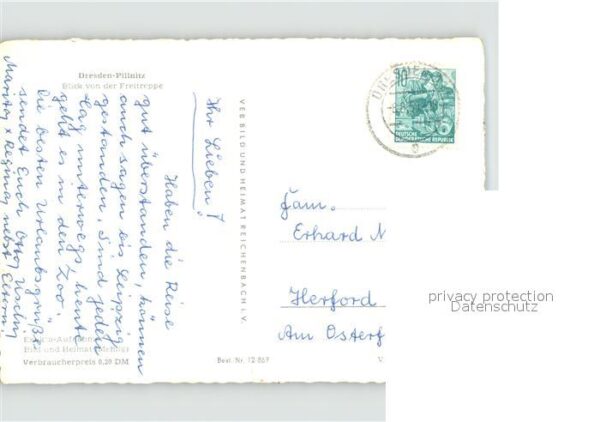 Dresden-Pillnitz
Blick von der Freitreppe
Ihr Lieben!
Haben die Reise
gut überstanden, können
auch sagen bis Leipzig
gestanden. Sind jeden
Tag unterwegs heute
geht es in den Zoo.
Die besten Urlaubsgrüße
sendet Euch Otto,
nebst Eltern.
Bild und Heimat
Verbraucherpreis 0,20 DM
VEB BILD UND HEIMAT REICHENBACH I. V.
Best. Nr. 12 869
V.
10
DEUTSCHE
DEMOKRATISCHE REPUBLIK
Fam.
Erhard
Herford
Am Osterf
privacy protection
Datenschutz